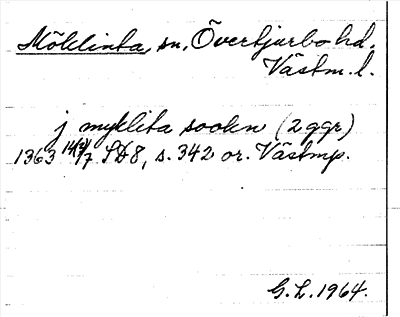 Möklinta, sn, Övertjurbo hd.
Västm. l.
j myklita sookn (2 ggr)
1363 14/7 SD8, s. 342 or. Västmp.
G. L. 1964.